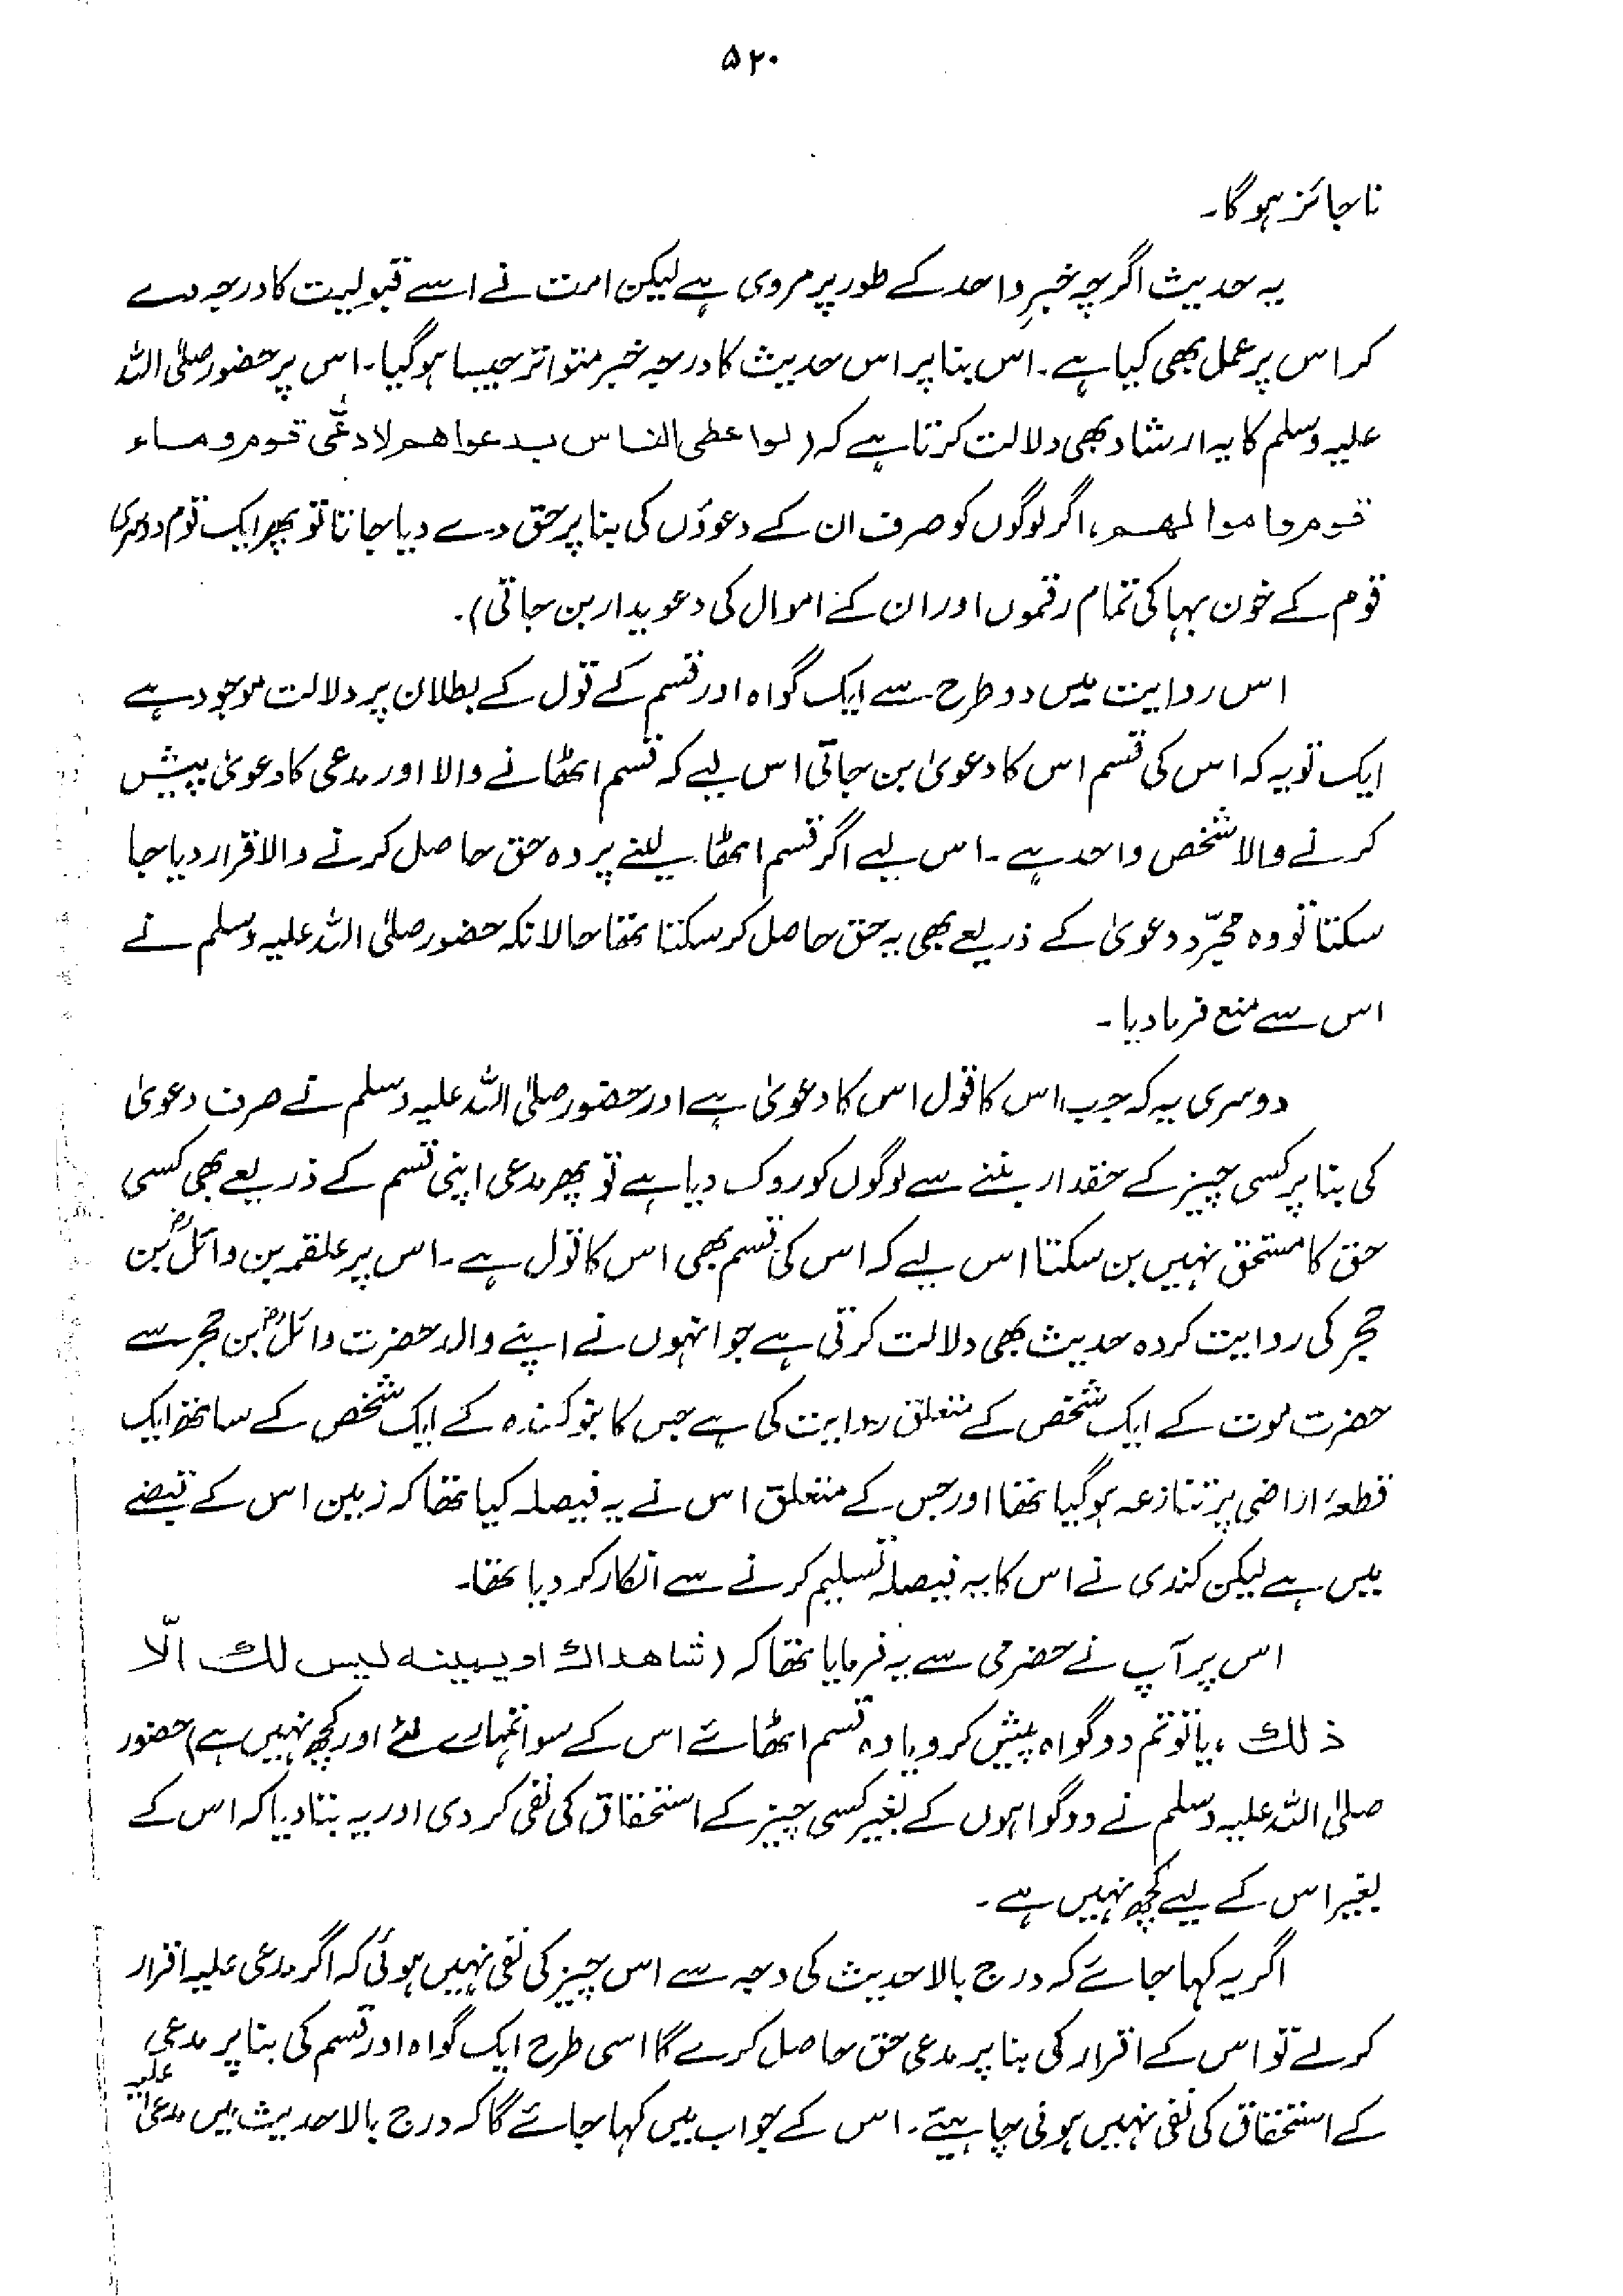 ۵۲۰
ناجائز ہوگا۔
یہ حدیث اگرچہ خبرِ واحد کے طور پر مروی ہے لیکن امت نے اسے قبولیت کا درجہ دے
کر اس پر عمل بھی کیا ہے۔ اس بنا پر اس حدیث کا درجہ خبر متواتر جیسا ہوگیا۔ اس پر حضور صلی اللہ
علیہ وسلم کا یہ ارشاد بھی دلالت کرتا ہے کہ (لو اعطی الناس بدعواھم لادعّی قوم دماء
قوم واموالھم، اگر لوگوں کو صرف ان کے دعوؤں کی بنا پر حق دے دیا جاتا تو پھر ایک قوم دوسری
قوم کے خون بہا کی تمام رقموں اور ان کے اموال کی دعویدار بن جاتی)۔
اس روایت میں دو طرح سے ایک گواہ اور قسم کے قول کے بطلان پر دلالت موجود ہے
ایک تو یہ کہ اس کی قسم اس کا دعویٰ بن جاتی اس لیے کہ قسم اٹھانے والا اور مدعی کا دعویٰ پیش
کرنے والا شخص واحد ہے۔ اس لیے اگر قسم اٹھا لینے پر وہ حق حاصل کرنے والا قرار دیا جا
سکتا تو وہ مجرّد دعویٰ کے ذریعے بھی یہ حق حاصل کرسکتا تھا حالانکہ حضور صلی اللہ علیہ وسلم نے
اس سے منع فرما دیا۔
دوسری یہ کہ جب اس کا قول اس کا دعویٰ ہے اور حضور صلی اللہ علیہ وسلم نے صرف دعویٰ
کی بنا پر کسی چیز کے حقدار بننے سے لوگوں کو روک دیا ہے تو پھر مدعی اپنی قسم کے ذریعے بھی کسی
حق کا مستحق نہیں بن سکتا اس لیے کہ اس کی قسم بھی اس کا قول ہے۔ اس پر علقمہ بن وائلؓ بن
حجر کی روایت کردہ حدیث بھی دلالت کرتی ہے جو انہوں نے اپنے والد حضرت وائلؓ بن حجر سے
حضرت موت کے ایک شخص کے متعلق روایت کی ہے جس کا بنو کندہ کے ایک شخص کے ساتھ ایک
قطعۂ اراضی پر تنازعہ ہوگیا تھا اور جس کے متعلق اس نے یہ فیصلہ کیا تھا کہ زمین اس کے قبضے
میں ہے لیکن کندی نے اس کا یہ فیصلہ تسلیم کرنے سے انکار کر دیا تھا۔
اس پر آپ نے حضرمی سے یہ فرمایا تھا کہ (شاھداك او یمینہ لیس لك الّا
ذلك، یا تو تم دو گواہ پیش کرو یا وہ قسم اٹھائے اس کے سوا تمہارے لئے اور کچھ نہیں ہے) حضور
صلی اللہ علیہ وسلم نے دو گواہوں کے بغیر کسی چیز کے استحقاق کی نفی کر دی اور یہ بتا دیا کہ اس کے
بغیر اس کے لیے کچھ نہیں ہے۔
اگر یہ کہا جائے کہ درج بالا حدیث کی وجہ سے اس چیز کی نفی نہیں ہوئی کہ اگر مدعی علیہ اقرار
کرلے تو اس کے اقرار کی بنا پر مدعی حق حاصل کرے گا اسی طرح ایک گواہ اور قسم کی بنا پر مدعی
کے استحقاق کی نفی نہیں ہونی چاہیئے۔ اس کے جواب میں کہا جائے گا کہ درج بالا حدیث میں مدعیٰ علیہ